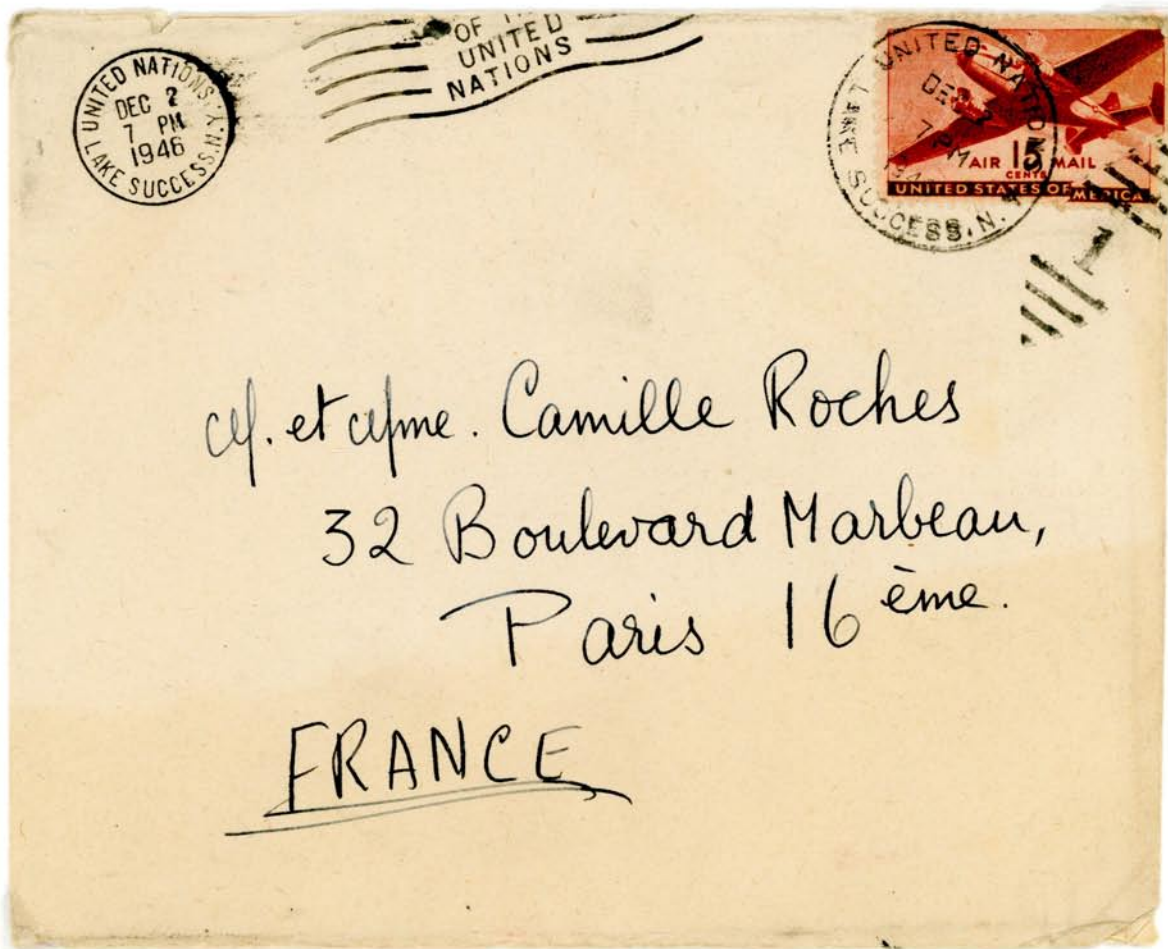 UNITED NATIONS, N.Y.
DEC 2
7 PM
1946
LAKE SUCCESS
OF
UNITED
NATIONS
UNITED NATIONS
DEC 2
7 PM
LAKE SUCCESS, N.
AIR 15 MAIL
CENTS
UNITED STATES OF AMERICA
1
M. et Mme. Camille Roches
32 Boulevard Marbeau,
Paris 16ème.
FRANCE